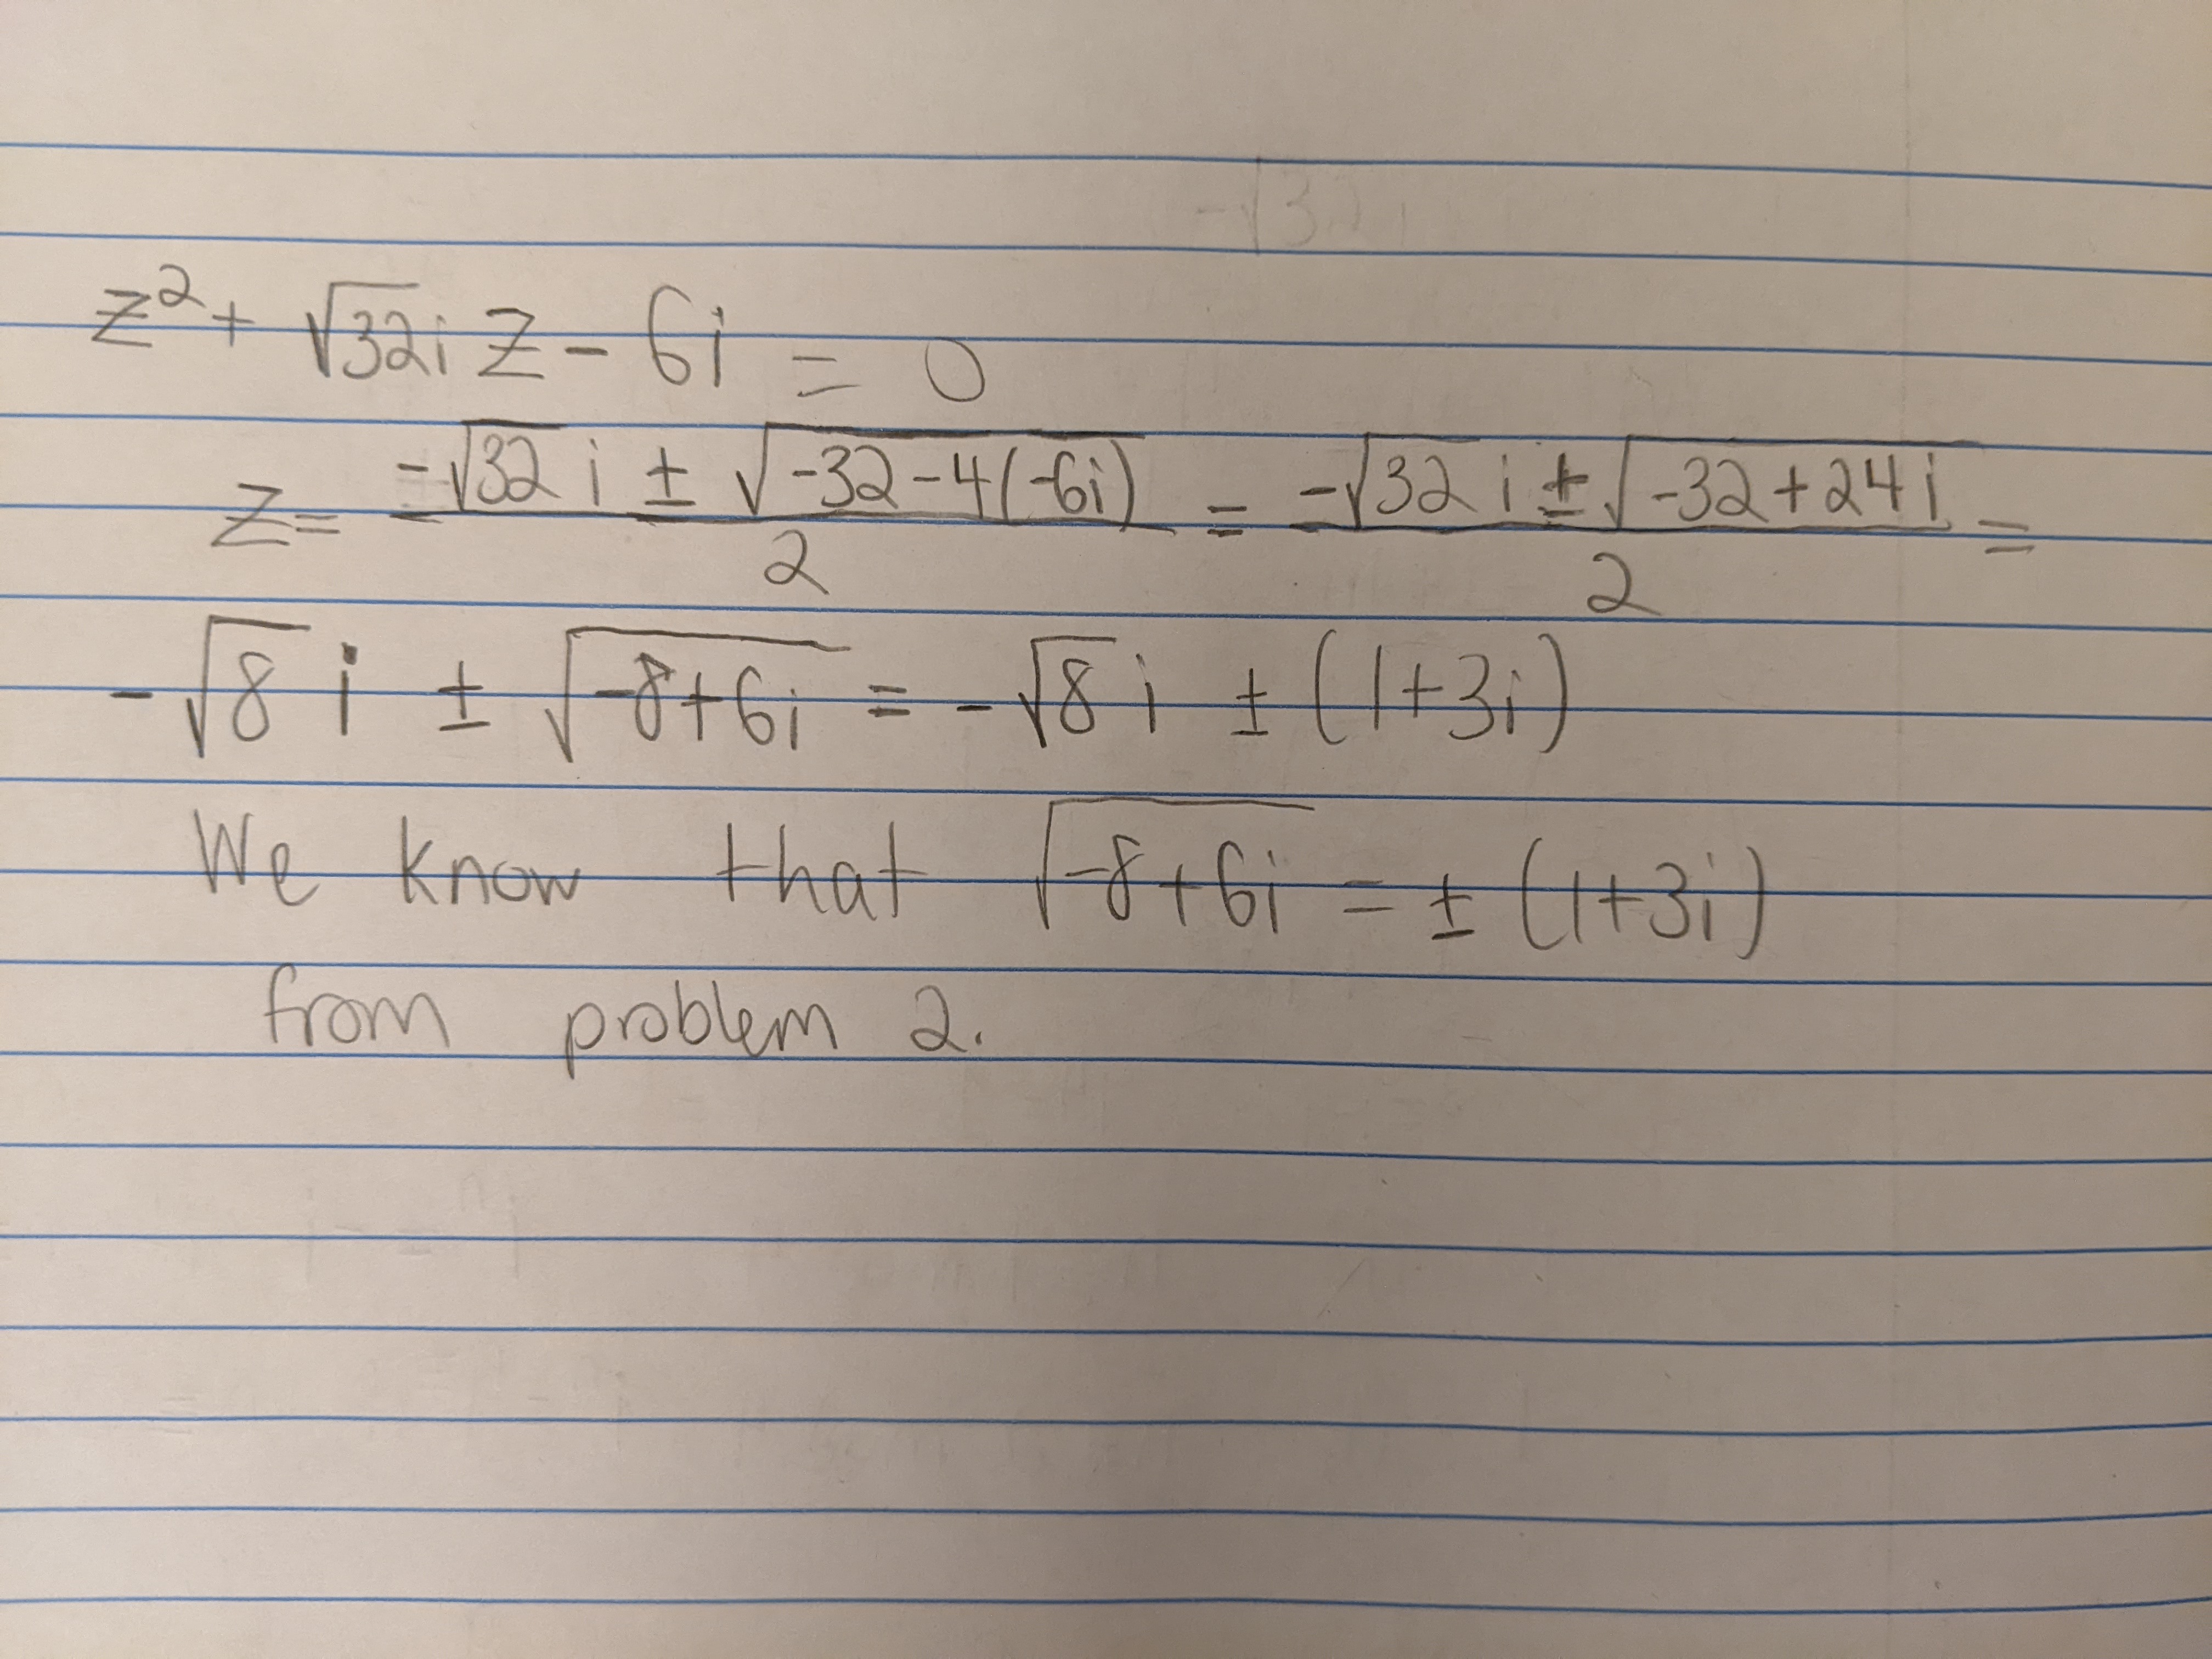 z² + √32 i z - 6i = 0
z = (-√32 i ± √(-32-4(-6i)))/2 = (-√32 i ± √(-32+24i))/2 =
-√8 i ± √(-8+6i) = -√8 i ± (1+3i)
We know that √(-8+6i) = ± (1+3i)
from problem 2.